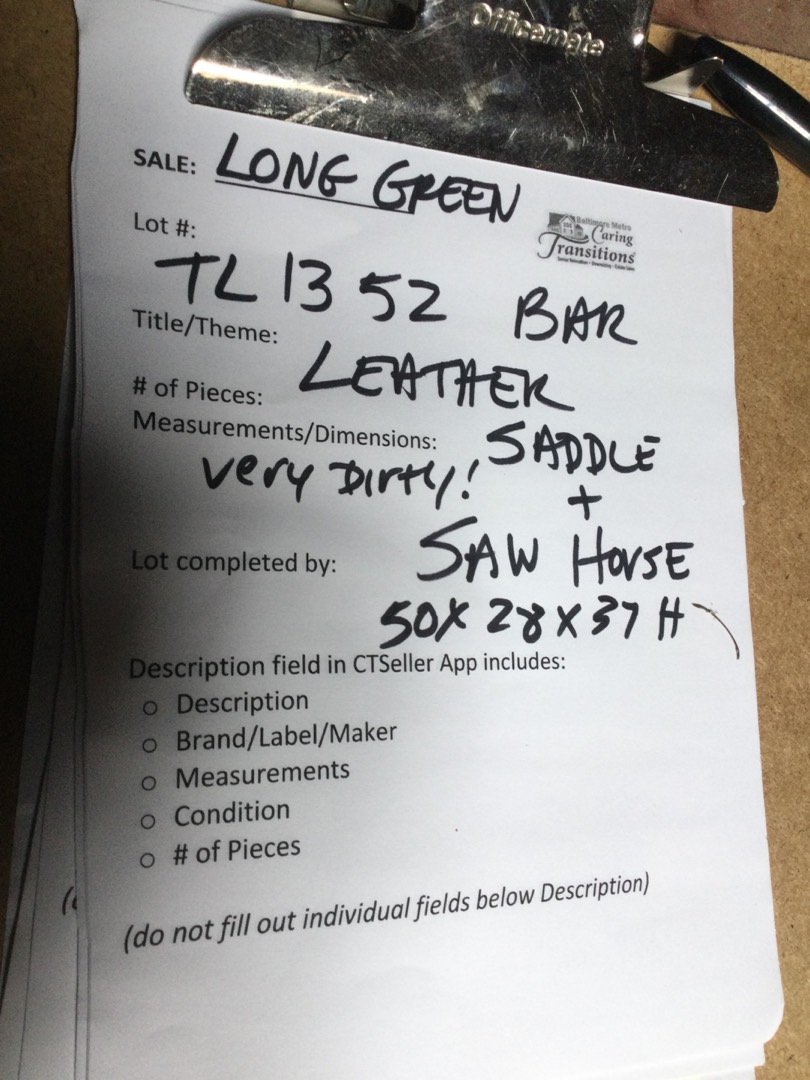 Officemate
SALE: LONG GREEN
Baltimore Metro
Caring
Transitions
Lot #:
TL 13 52 BAR
Title/Theme:
LEATHER
# of Pieces:
Measurements/Dimensions: SADDLE
very Dirty! +
Lot completed by: SAW HORSE
50X 28 X 37 H
Description field in CTSeller App includes:
o Description
o Brand/Label/Maker
o Measurements
o Condition
o # of Pieces
(do not fill out individual fields below Description)